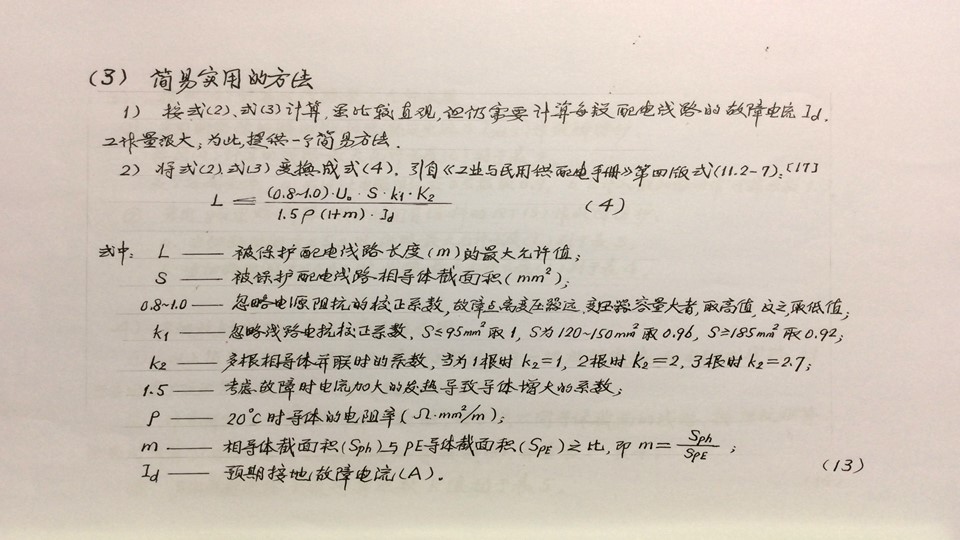 (3) 简易实用的方法
1) 按式(2)、式(3)计算,虽比较直观,但仍需要计算每段配电线路的故障电流 Id,
工作量很大;为此,提供一个简易方法.
2) 将式(2)、式(3)变换成式(4).引自《工业与民用供配电手册》第四版式(11.2-7):[17]
L ≤ (0.8~1.0)·U₀·S·k₁·K₂ / 1.5ρ(1+m)·Id (4)
式中: L —— 被保护配电线路长度(m)的最大允许值;
S —— 被保护配电线路相导体截面积(mm²);
0.8~1.0 —— 忽略电源阻抗的校正系数,故障点离变压器远、变压器容量大者,取高值,反之,取低值;
k₁ —— 忽略线路电抗校正系数, S≤95mm²取1, S为120~150mm²取0.96, S≥185mm²取0.92;
k₂ —— 多根相导体并联时的系数,当为1根时k₂=1, 2根时k₂=2, 3根时k₂=2.7;
1.5 —— 考虑故障时电流加大的发热导致导体增大的系数;
ρ —— 20℃时导体的电阻率(Ω·mm²/m);
m —— 相导体截面积(Sph)与PE导体截面积(SPE)之比,即 m = Sph/SPE ;
Id —— 预期接地故障电流(A).
(13)